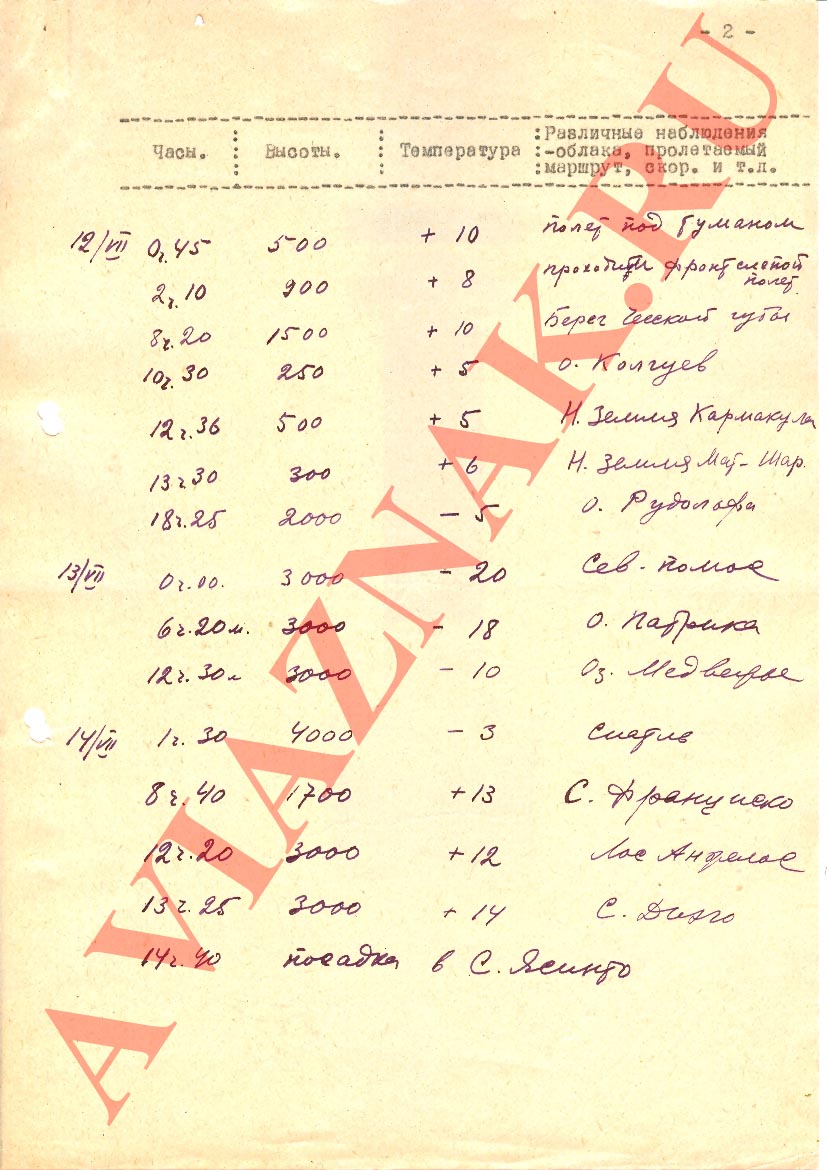 - 2 -
Часы. : Высоты. : Температура : Различные наблюдения
:-облака, пролетаемый
:маршрут, скор. и т.л.
12/VII 0ч.45 500 + 10 полет под туманом
2ч.10 900 + 8 фронт слепой
полет.
8ч.20 1500 + 10 Берег Чесской губы
10ч.30 250 + 5 о. Колгуев
12ч.36 500 + 5 Н. Земля Кармакула
13ч30 300 + 6 Н. Земля Мат-Шар.
18ч.25 2000 - 5 о. Рудольфа
13/VII 0ч.00. 3000 - 20 Сев. полюс
6ч.20м. 3000 - 18 о. Патрика
12ч.30м 3000 - 10 Оз. Медвежье
14/VII 1ч.30 4000 - 3 Сиатль
8ч.40 1700 +13 С. Франциско
12ч.20 3000 +12 Лос Анжелос
13ч.25 3000 + 14 С. Диэго
14ч.40 посадка в С. Ясинто
AVIAZNAK.RU